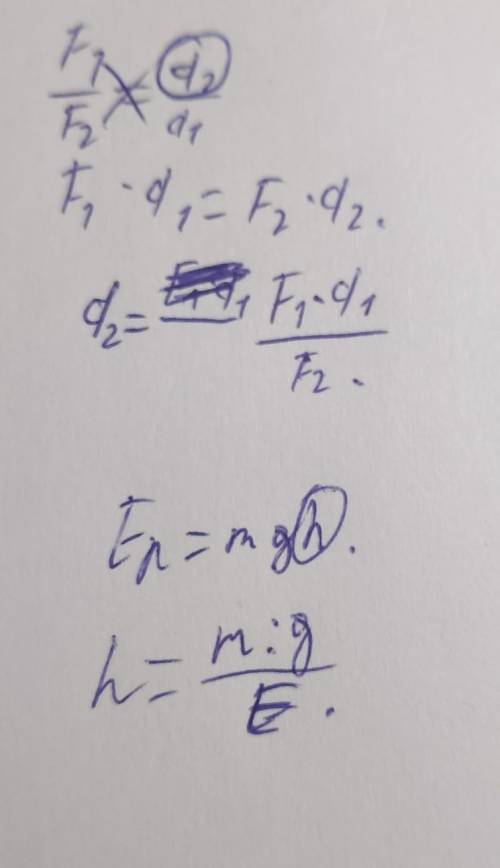 F₁/F₂ = d₂/d₁
F₁ · d₁ = F₂ · d₂.
d₂ = F₁ · d₁/F₂.
Eп = mgh.
h = m : g/E.